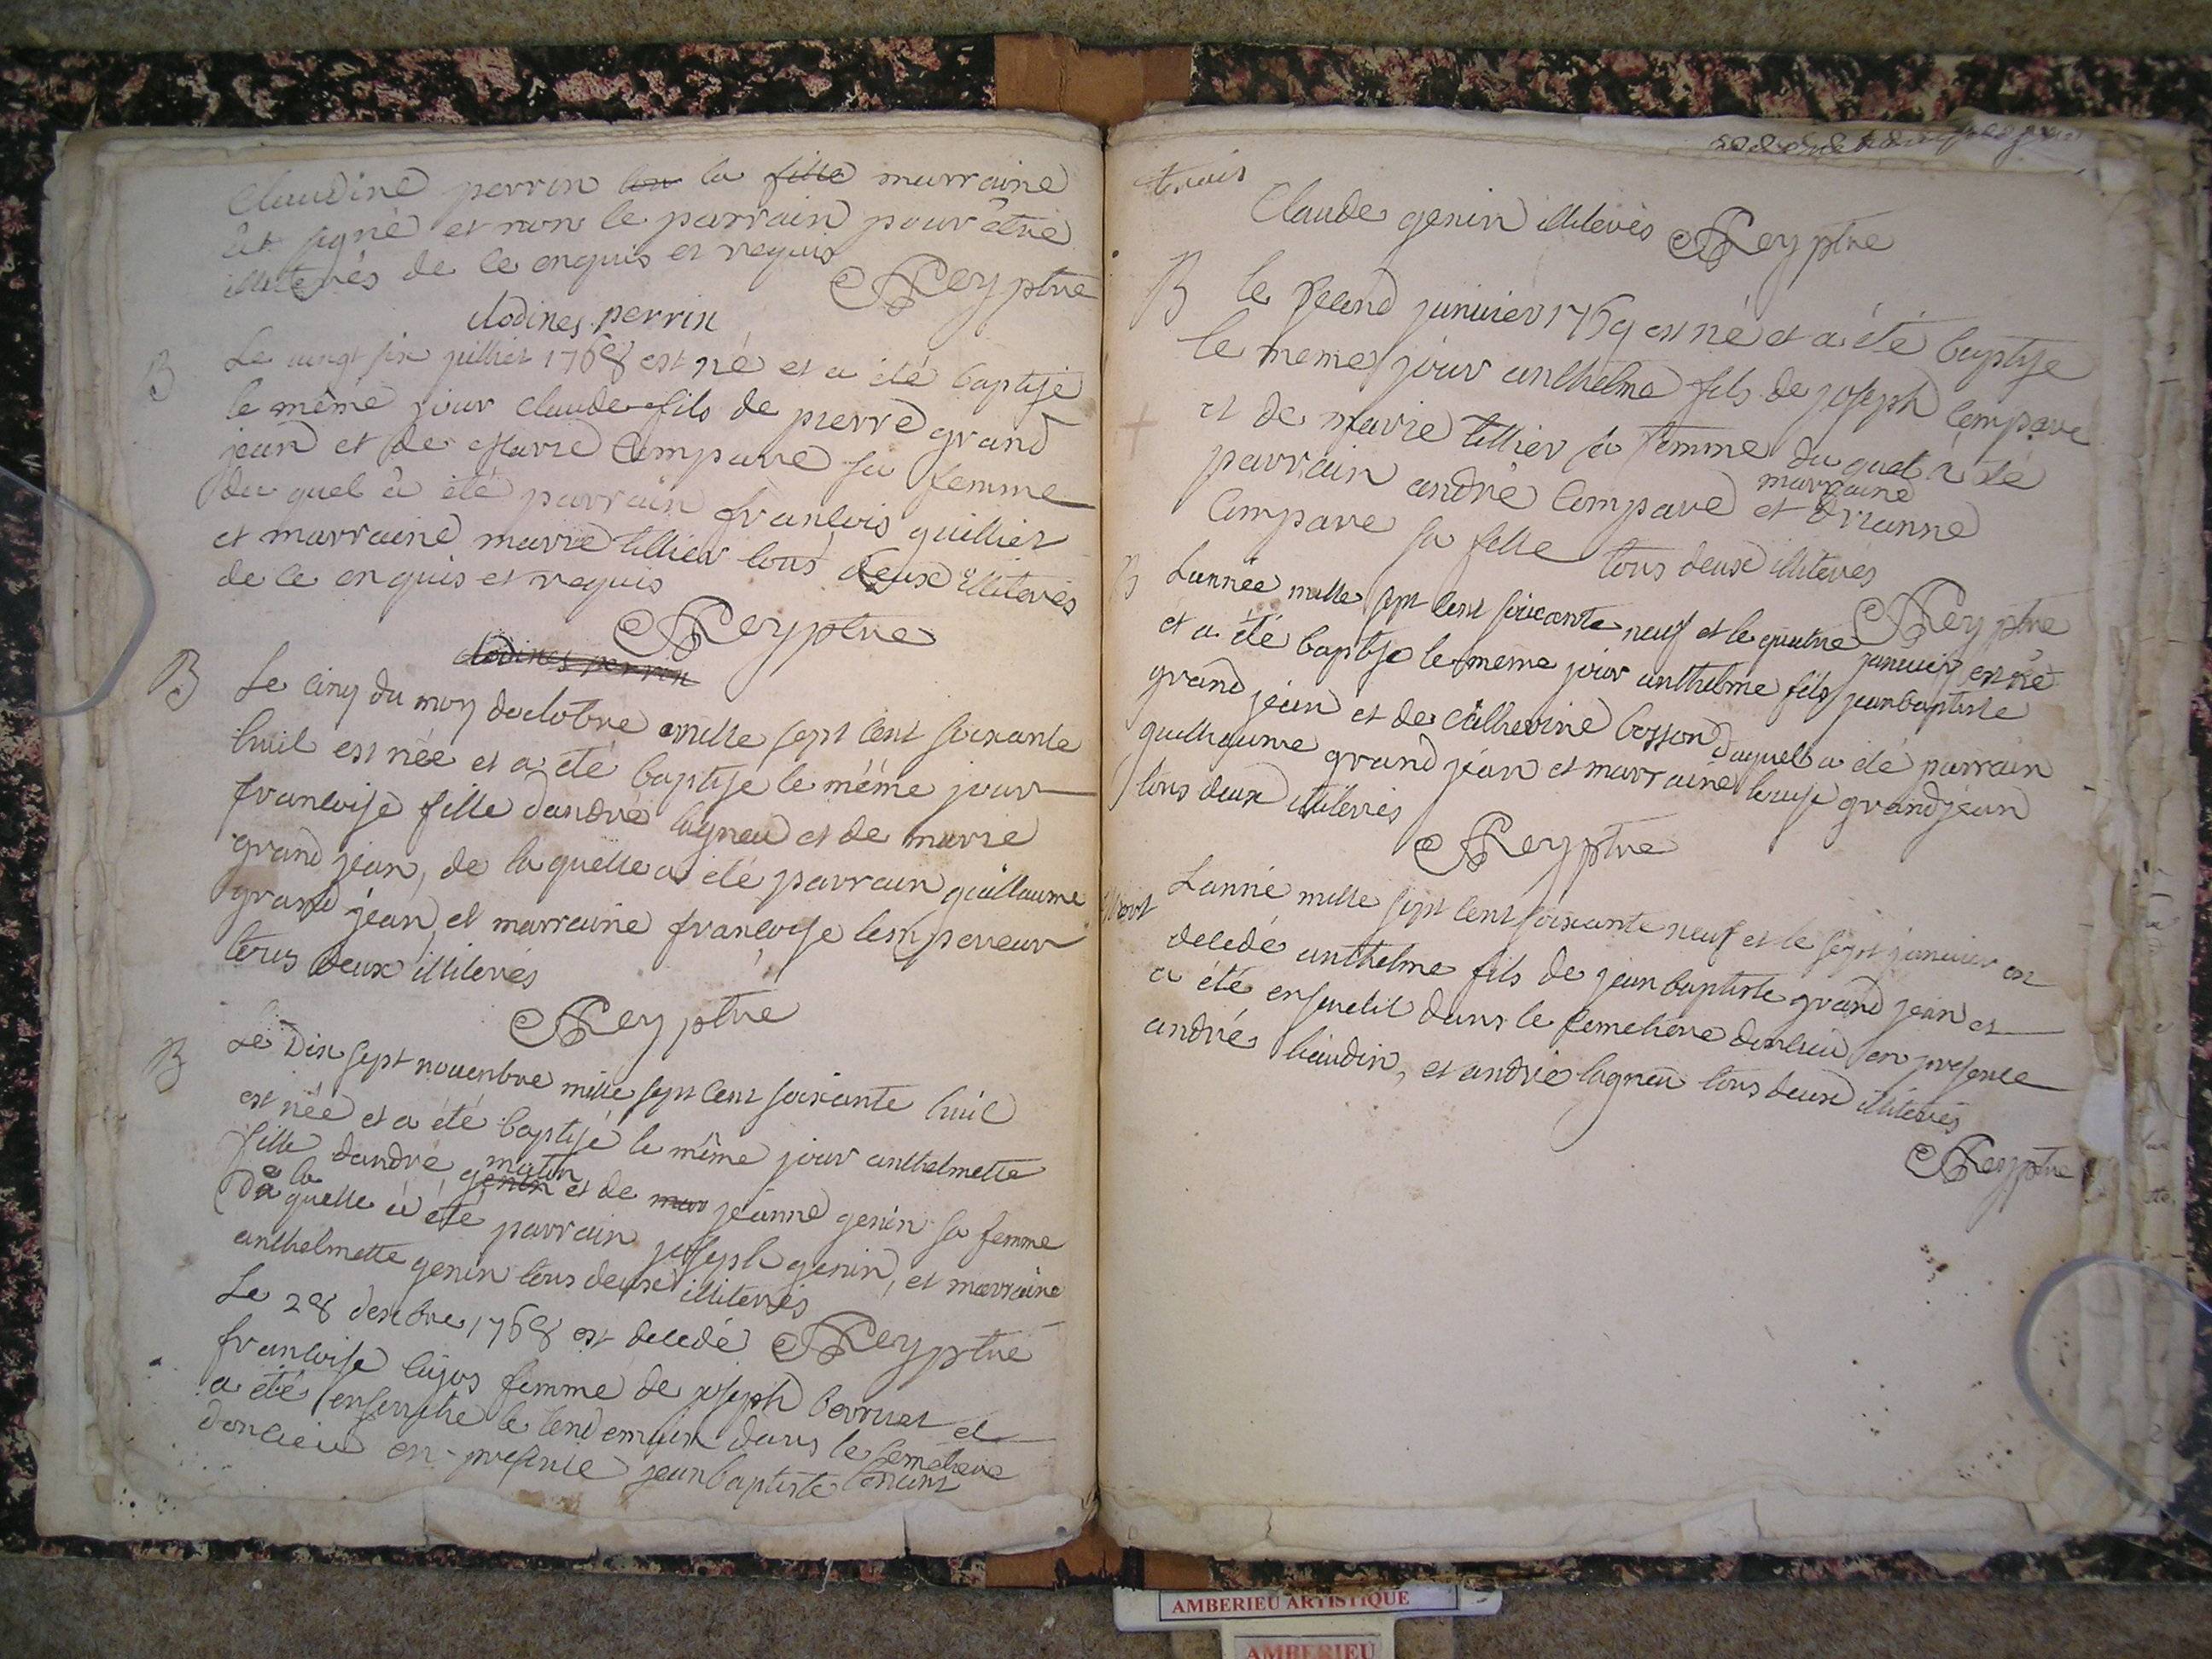 Claudine perrin la fille marraine
àt signé et non le parrain pour être
illiterés de ce enquis et requis
Rey ptre
clodines perrin
B Le vingt six juilliet 1768 est né et a été baptisé
le même jour claude fils de pierre grand
jean et de Marie Compare sa femme
du quel à été parrain francois guilliet
et marraine marie tillier tous deux illiterés
de ce enquis et requis
Rey ptre
clodines perrin
B Le cinq du moy doctobre mille sept cent soixante
huit est née et a été baptise le même jour
francoise fille dandré lagneu et de marie
grand jean, de laquelle a été parrain guillaume
grand jean, et marraine francoise lempereur
tous deux illiterés
Rey ptre
B Le Dix sept nouenbre mille sept cent soixante huit
est née et a été baptisé le même jour anthelmette
matin
fille dandré genin et de mar jeanne genin sa femme
de la quelle à été parrain joseph genin, et marraine
anthelmette genin tous deux illiterés
Le 28 desenbre 1768 est decedé Rey ptre
francoise cujos femme de joseph berruet et
a été ensevelie le lendemain dans le semetiere
donlieu en presence jeanbaptiste
Claude genin illiterés Rey ptre
B le second januier 1769 est né et a été baptise
le meme jour anthelme fils de joseph Compare
et de marie tillier sa femme du quel a été
marraine
parrain andré Compare et
Compare sa fille tous deux illiterés
Rey ptre
B Lannée mille sept cent soixante neuf et le quatre januier est né
et a été baptise le meme jour anthelme fils jeanbaptiste
grand jean et de catherine bosson duquel a été parrain
guillaume grand jean et marraine grandjean
tous deux illiterés
Rey ptre
Mort Lanné mille sept cent soixante neuf et le sept januier est
decedé anthelme fils de jeanbaptiste grand jean et
a été enseuelit dans le semetiere donlieu en presence
andré baudin, et andré lagneu tous deux illiterés
Rey ptre
AMBERIEU ARTISTIQUE
AMBERIEU